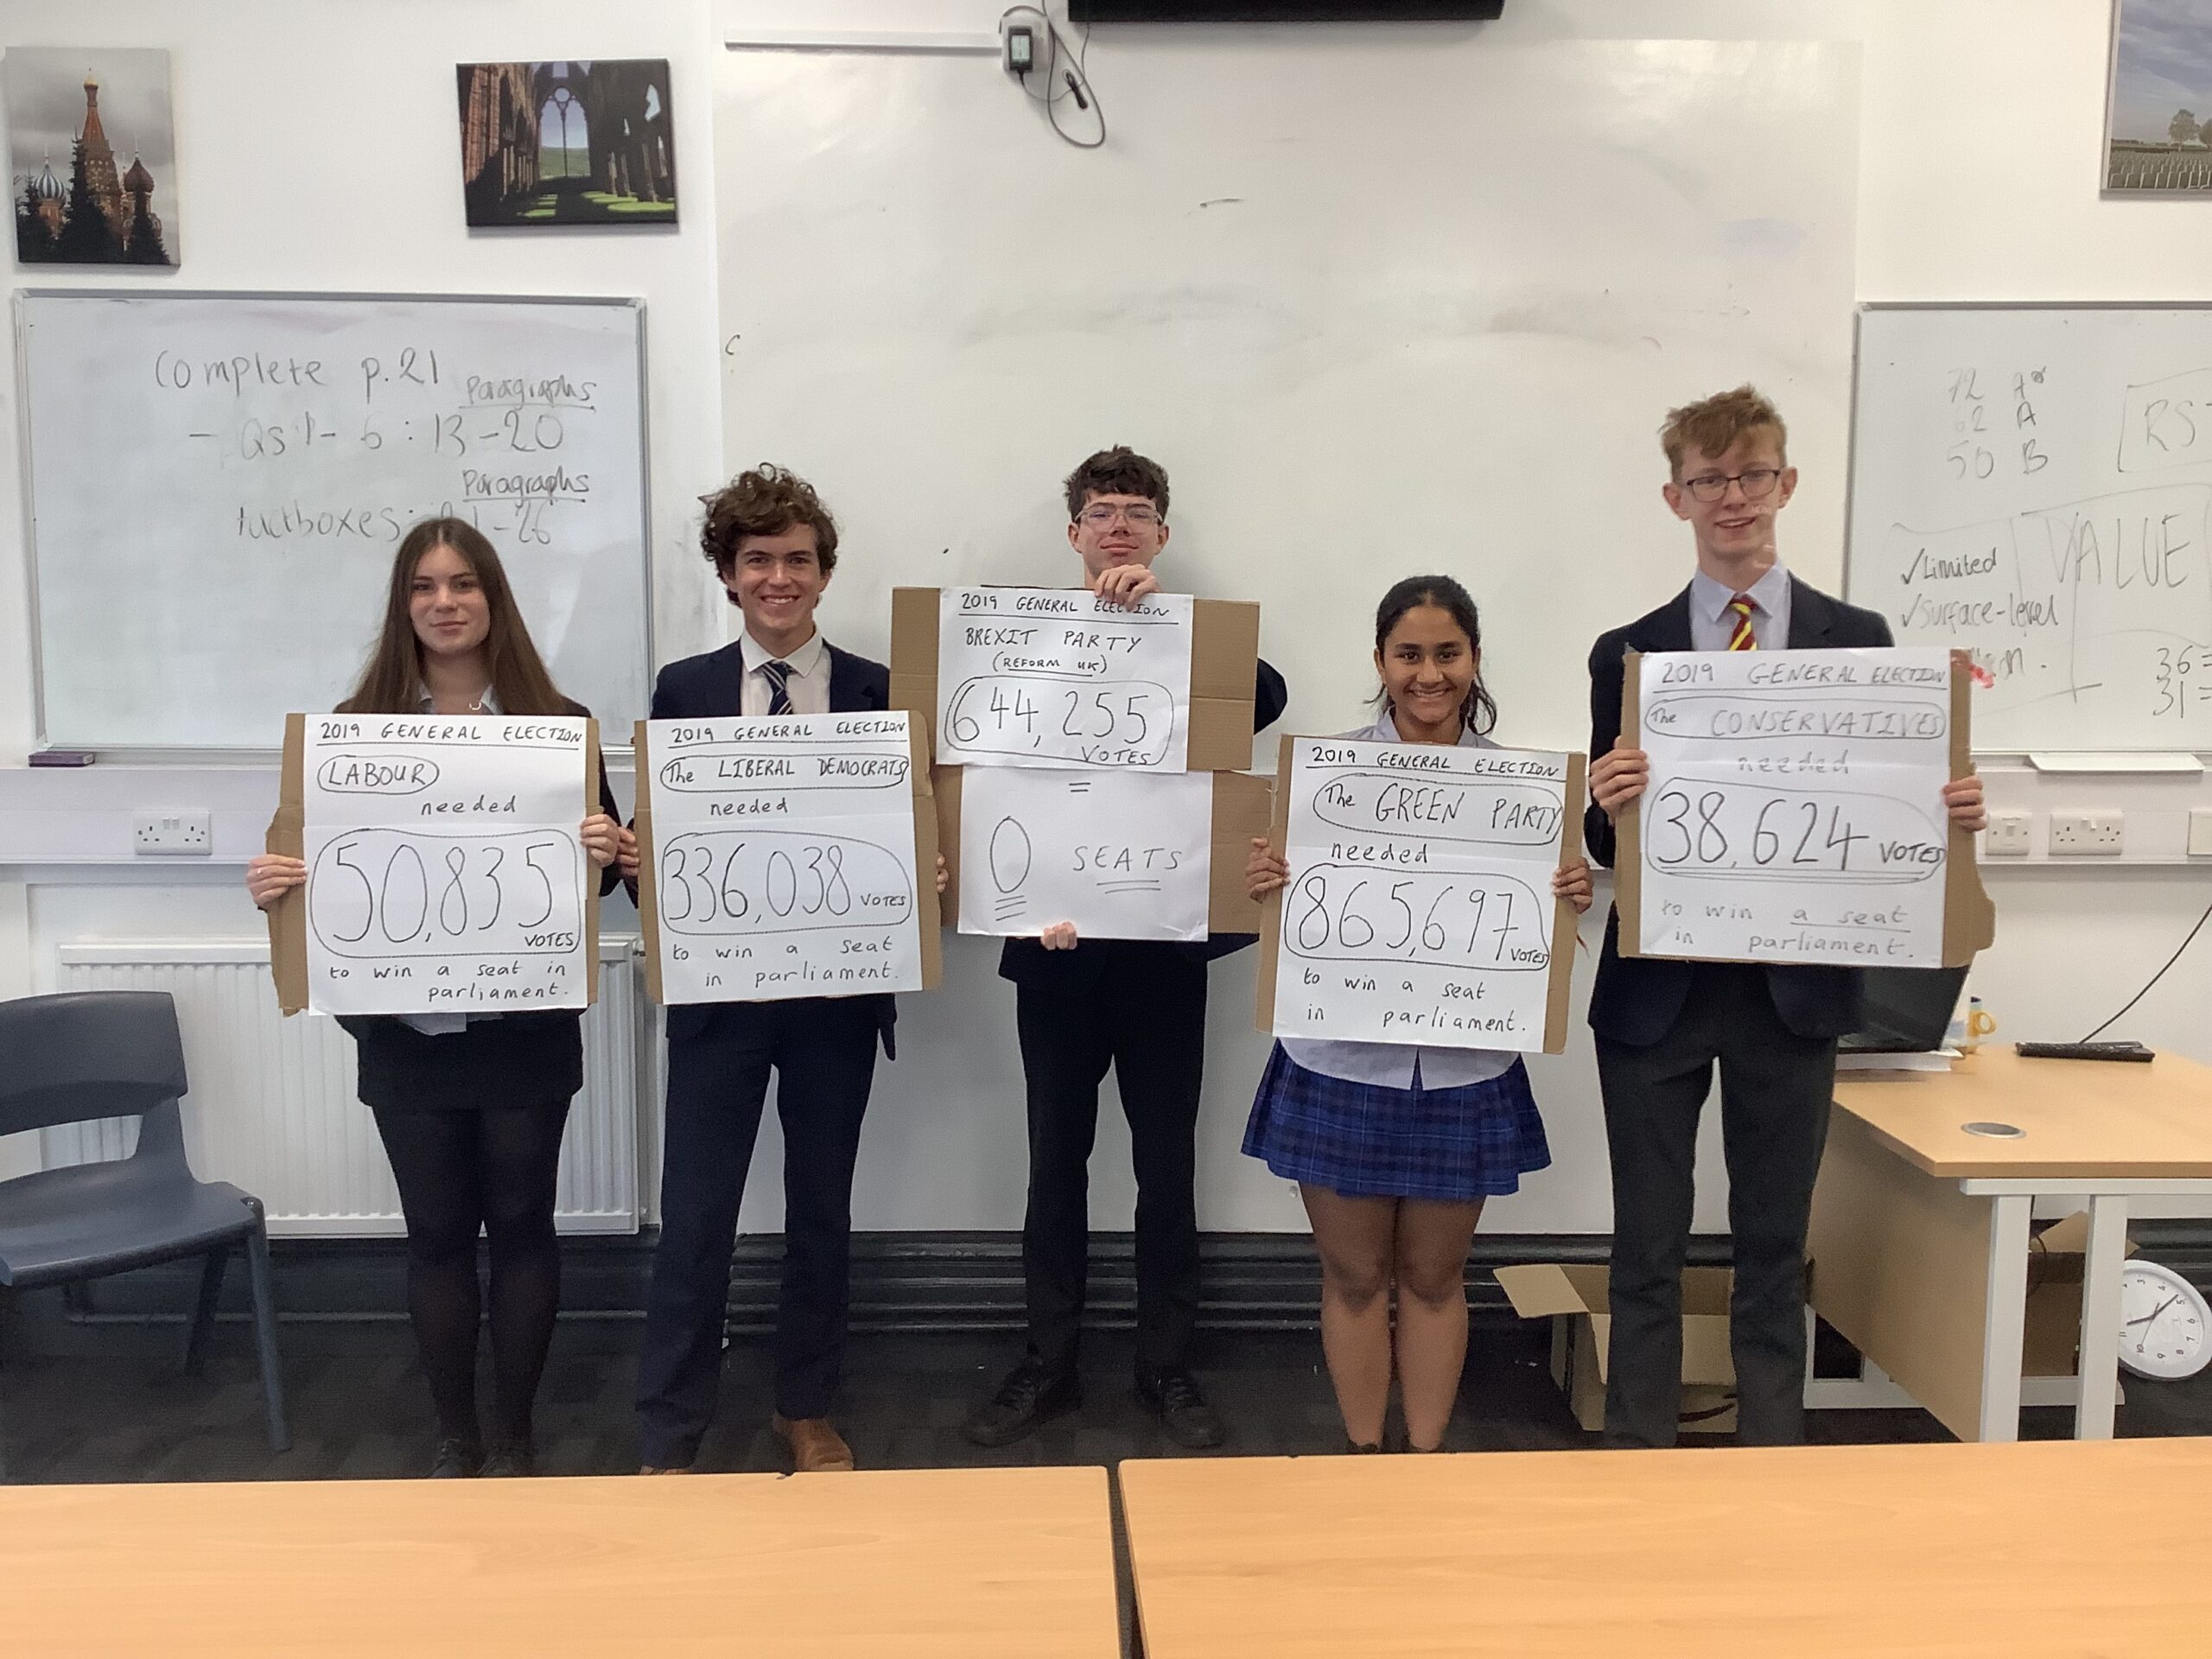 Complete p.21
Paragraphs
- Qs 1- 6 : 13-20
Paragraphs
-26
72 A*
62 A
50 B
RS
VALUE
✓Limited
✓Surface-level
36=
31=
2019 GENERAL ELECTION
LABOUR
needed
50,835
VOTES
to win a seat in
parliament.
2019 GENERAL ELECTION
The LIBERAL DEMOCRATS
needed
336,038 VOTES
to win a seat
in parliament.
2019 GENERAL ELECTION
BREXIT PARTY
(REFORM UK)
644,255
VOTES
=
0 SEATS
2019 GENERAL ELECTION
The GREEN PARTY
needed
865,697 VOTES
to win a seat
in parliament.
2019 GENERAL ELECTION
The CONSERVATIVES
needed
38,624 VOTES
to win a seat
in parliament.